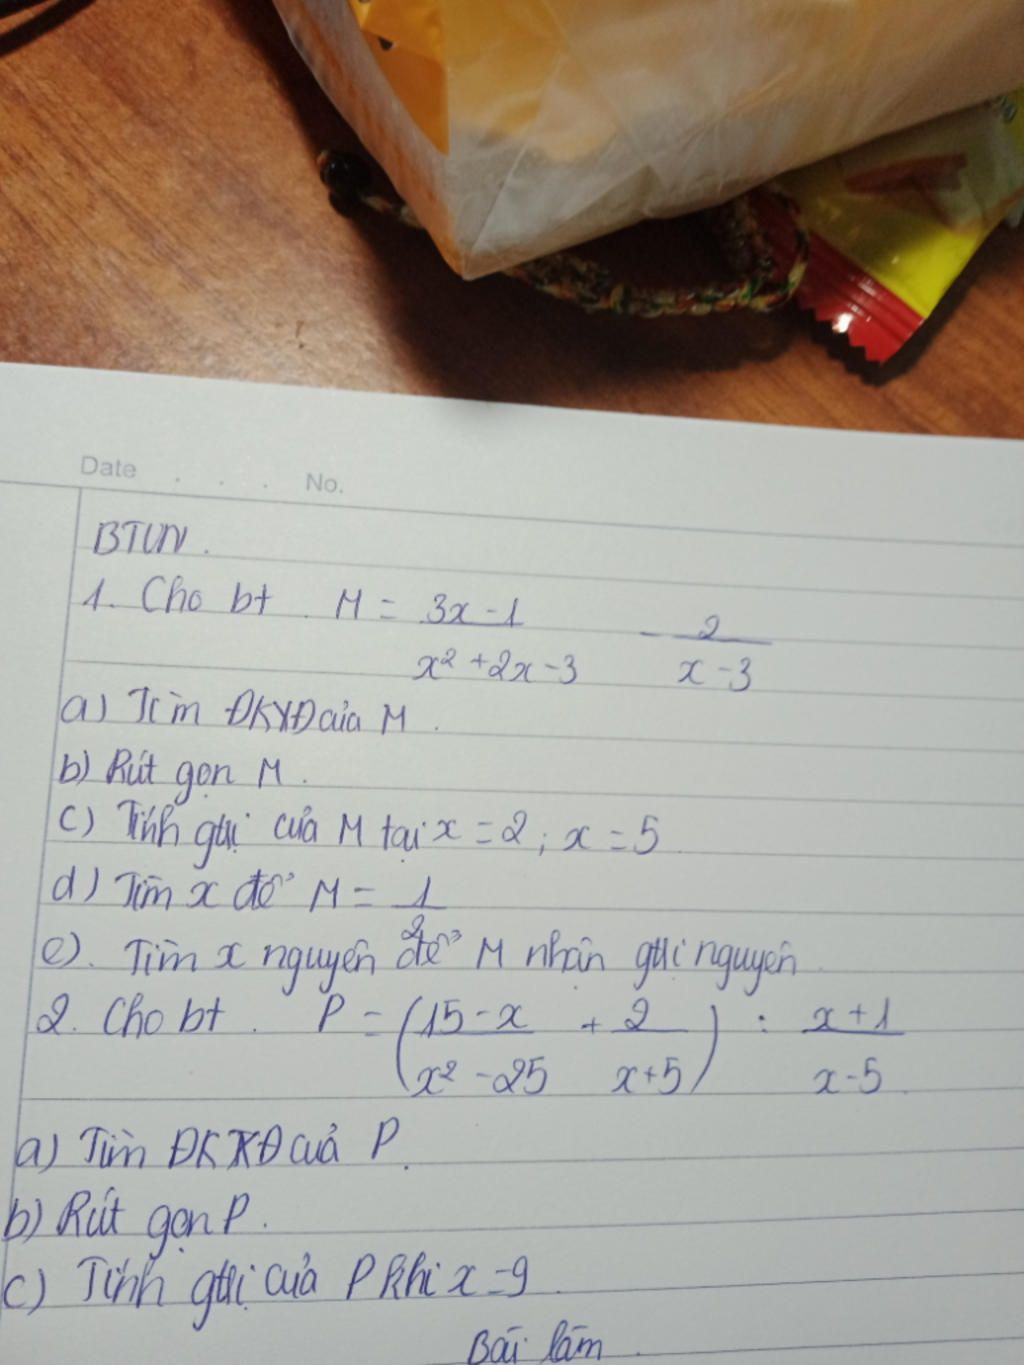 Date . . . No.
BTVN.
1. Cho bt M = \frac{3x-1}{x²+2x-3} - \frac{2}{x-3}
a) Tìm ĐKXĐ của M.
b) Rút gọn M.
c) Tính gtri của M tại x = 2; x = 5
d) Tìm x để M = \frac{1}{2}
e). Tìm x nguyên để M nhận gtri nguyên
2. Cho bt. P = (\frac{15-x}{x²-25} + \frac{2}{x+5}) : \frac{x+1}{x-5}
a) Tìm ĐKXĐ của P.
b) Rút gọn P.
c) Tính gtri của P khi x = 9
Bài làm.